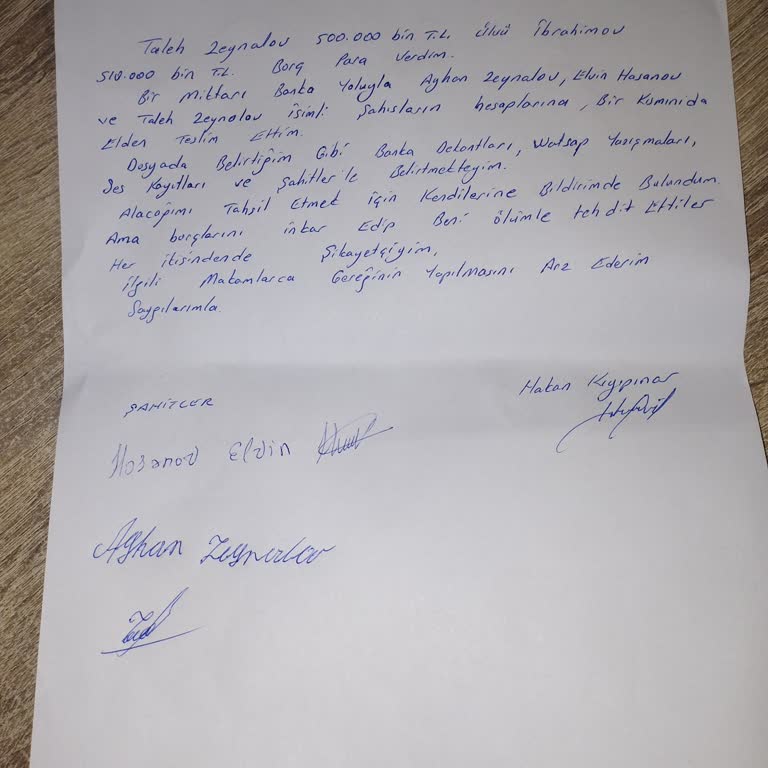 Taleh Zeynalov 500.000 bin T.L. Ülvü İbrahimov
510.000 bin T.L. Borç Para Verdim.
Bir Miktarı Banka Yoluyla Ayhan Zeynalov, Elvin Hasanov
ve Taleh Zeynalov İsimli Şahısların hesaplarına, Bir Kısmınıda
Elden Teslim Ettim.
Dosyada Belirtiğim Gibi Banka Dekontları, Watsap Yazışmaları,
Ses Kayıtları ve Şahitler'le Belirtmekteyim.
Alacağımı Tahsil Etmek İçin Kendilerine Bildirimde Bulundum.
Ama borçlarını inkar Edip Beni ölümle tehdit Ettiler
Her ikisindende Şikayetçiyim,
ilgili Makamlarca Gereğinin Yapılmasını Arz Ederim
Saygılarımla.
Hakan Kıyıpınar
ŞAHİTLER
Hasanov Elvin
Ayhan Zeynalov